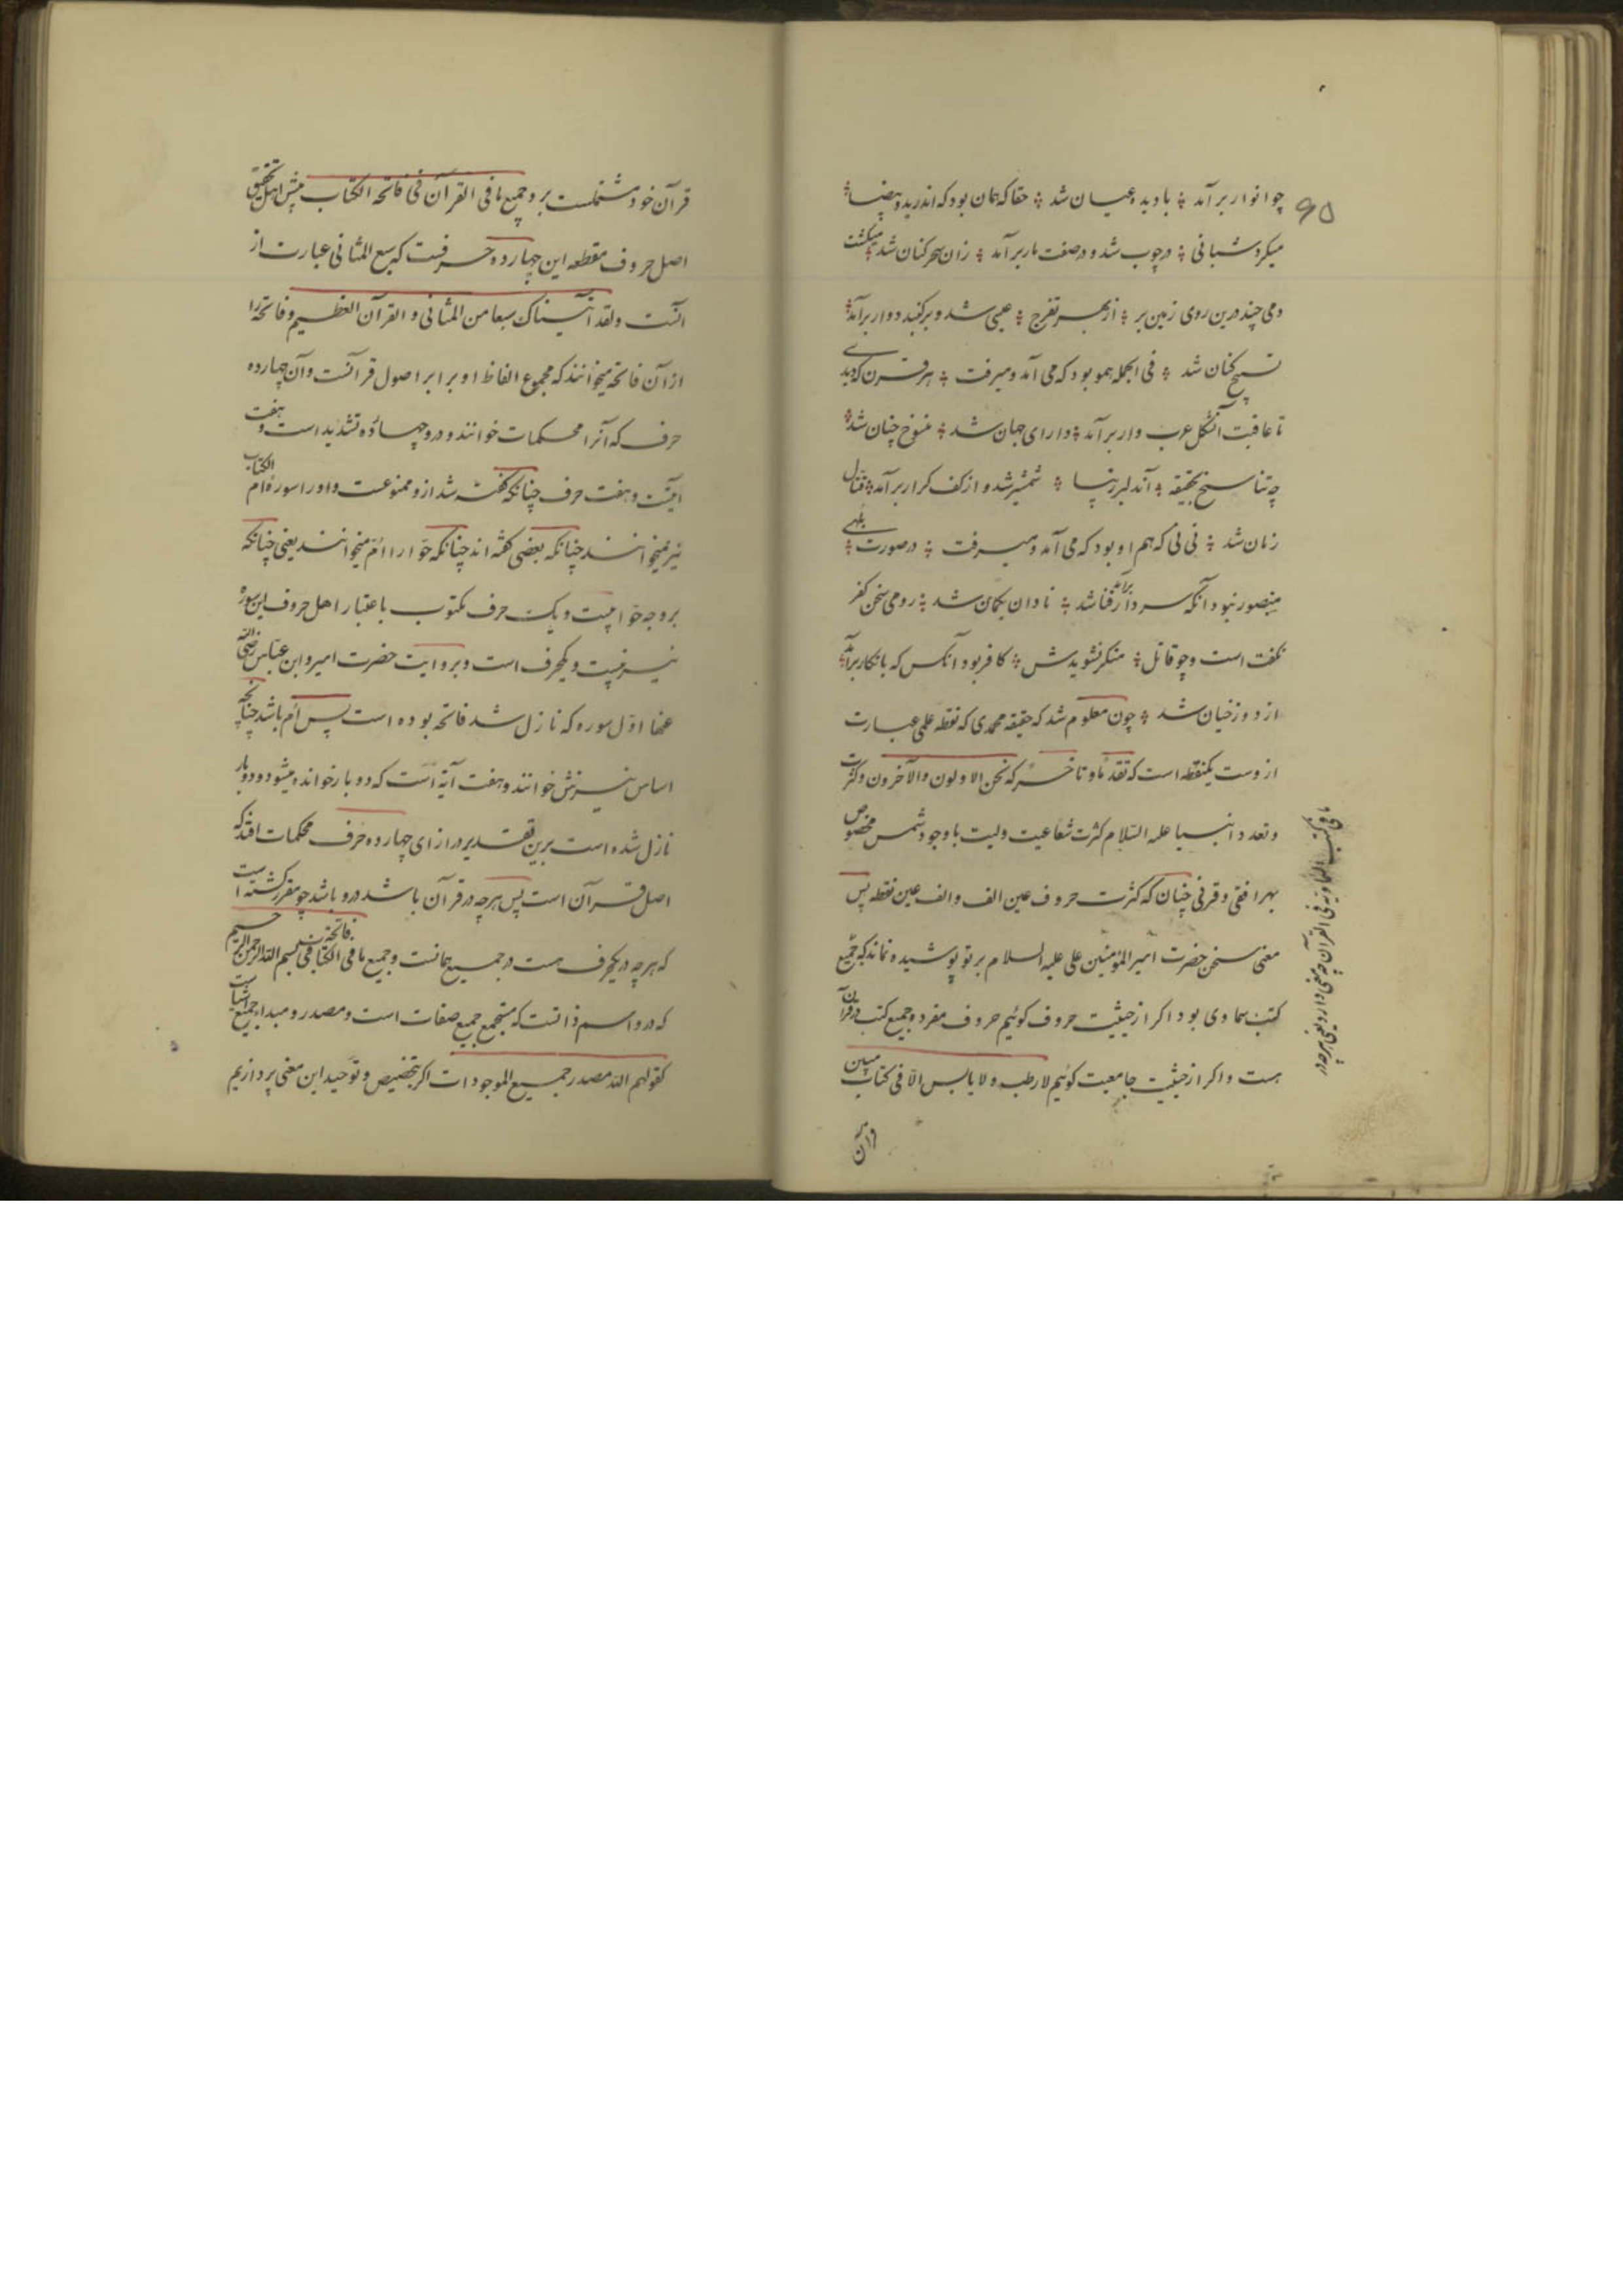 ۶۵
چو انوار بر آمد ؛ با دیده عیان شد ؛ حقا که همان بود که اندر ید بیضا ؛
میکرد شبانی ؛ در چوب شد و در صفت مار بر آمد ؛ زان سحر کنان شد ؛ میکشت
دمی چند درین روی زمین بر ؛ از بهر تفرج ؛ عیسی شد و بر گنبد دوار بر آمد ؛
تسبیح کنان شد ؛ فی الجمله همو بود که می آمد و میرفت ؛ هر قرن که دیدی
تا عاقبت آن شکل عرب وار بر آمد ؛ دارای جهان شد ؛ منسوخ چنان شد ؛
چه تناسخ بحقیقه ؛ آن دلبر زیبا ؛ شمشیر شد و از کف کرار بر آمد ؛ قتال
زمان شد ؛ نی نی که هم او بود که می آمد و میرفت ؛ در صورت بلهی ؛
منصور نبود آنکه سر دار فنا شد بر آمد ؛ نادان بکمان شد ؛ رومی سخن کفر
نکفت است و چو قائل ؛ منکر نشویدش ؛ کافر بود آنکس که بانکار بر آمد ؛
از دوزخیان شد ؛ چون معلوم شد که حقیقه محمدی که نقطه علی عبارت
ازوست یکنقطه است که تقدما و تاخر که نحن الاولون والآخرون و کثرت
و تعدد انبیا علیه السلام کثرت شعاعیت ولیت با وجود شمس مخصوص
بهر افقی و قرنی چنان که کثرت حروف عین الف و الف عین نقطه پس
معنی سخن حضرت امیر المؤمنین علی علیه السلام بر تو پوشیده نماند که جمیع
کتب سماوی بود اکر از حیثیت حروف کوئیم حروف مفرده جمیع کتب در قرآن
هست و اکر از حیثیت جامعیت کوئیم لا رطب و لا یابس الا فی کتاب مبین
قرآن خود مشتملست برو و جمیع ما فی القرآن فی فاتحه الکتاب پیش اهل تحقیق
اصل حروف مقطعه این چهارده حرفست که سبع المثانی عبارت از
انست و لقد آتیناک سبعا من المثانی و القرآن العظیم و فاتحه را
از آن فاتحه میخوانند که مجموع الفاظ او برابر اصول قرآنست و آن چهارده
حرف که آنرا محکمات خوانند و درو چهارده تشدید است و هفت
آیتست و هفت حرف چنانکه کفته شد ازو ممنوعست و او را سوره ام الکتاب
نیز میخوانند چنانکه بعضی کفته اند چنانکه حوا را ام میخوانند یعنی چنانکه
بر وجه حوا بیست و یک حرف مکتوب باعتبار اهل حروف این سوره
نیز بیست و یکحرف است و بروایت حضرت امیر و ابن عباس رضی الله
عنها اول سوره که نازل شد فاتحه بوده است پس ام باشد چنانچه
اساس نیزش خوانند و هفت آیة است که دو بار خوانده میشود و دو بار
نازل شده است برین تقدیر در ازای چهارده حرف محکمات افتد که
اصل قرآن است پس هر چه در قرآن باشد درو باشد چو مقرر کشته است
که هر چه در یکحرف هست در جمیع همانست و جمیع ما فی فاتحة الکتاب فی بسم الله الرحمن الرحیم
که درو اسم ذاتست که مستجمع جمیع صفات است و مصدر و مبداء جمیع اشیاست
کقولهم الله مصدر جمیع الموجودات اکر بتخصیص و توحید این معنی پردازیم